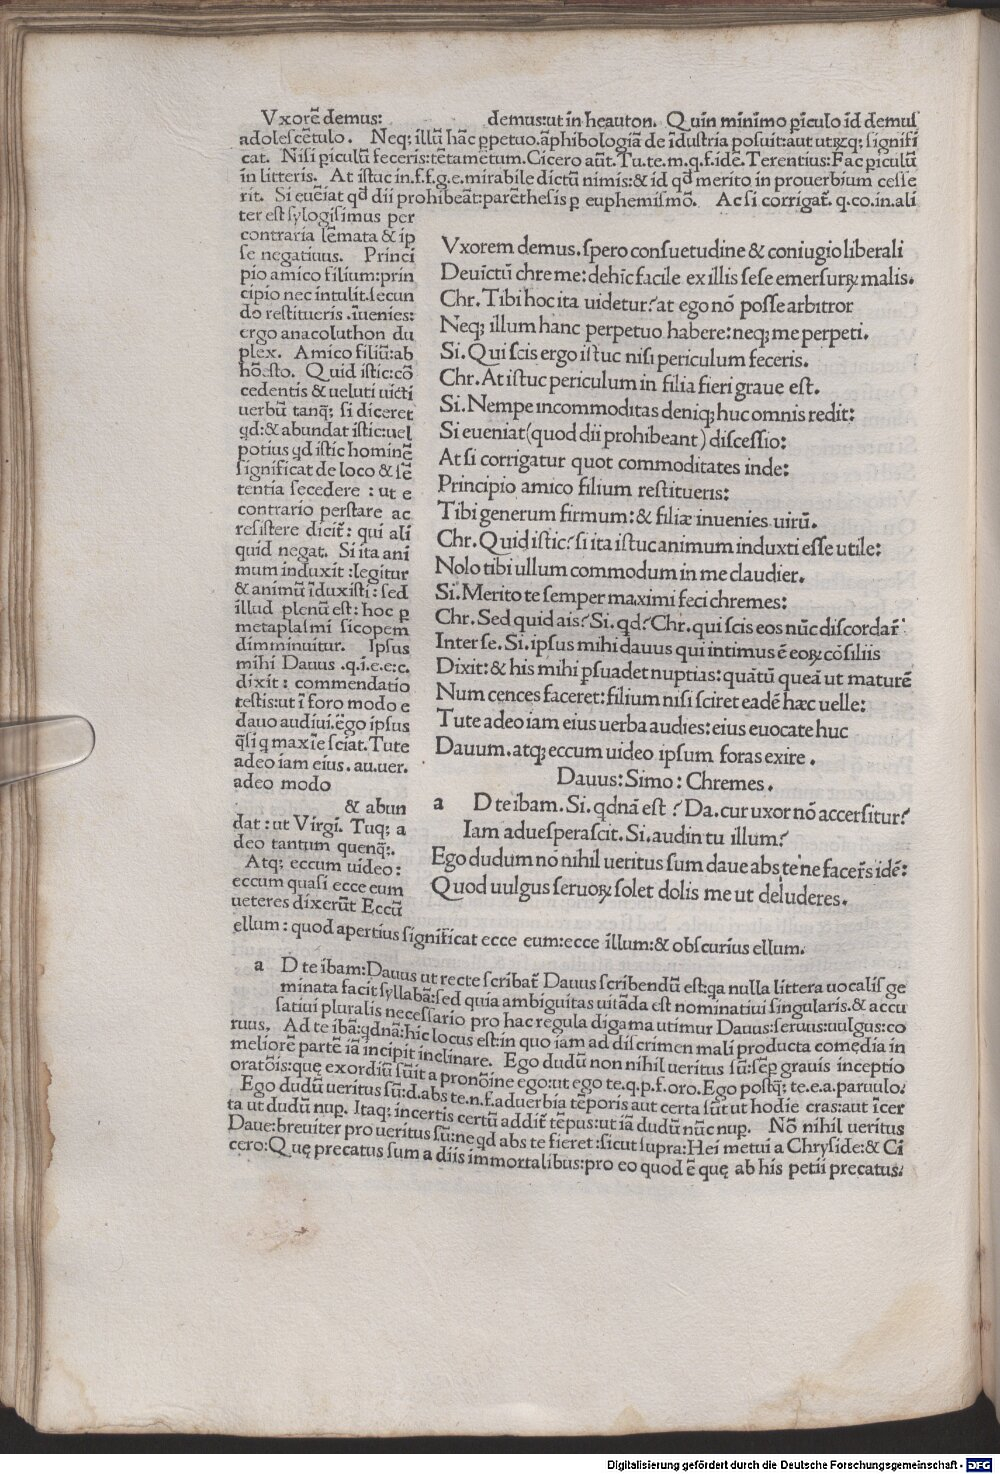 Vxorē demus: demus:ut in heauton. Quin minimo ꝑiculo id demus
adolescētulo. Neqꝫ illū hāc ꝑpetuo.āphibologiā de īdustria posuit:aut utrꝫqꝫ signifi
cat. Nisi ꝑiculū feceris:tētametum.Cicero aūt.Tu.te.m.q.f.idē.Terentius:Fac ꝑiculū
in litteris. At istuc in.f.f.g.e.mirabile dictū nimis:& id qđ merito in prouerbium cesse
rit. Si euēiat qđ dii prohibeāt:parēthesis ꝑ euphemismō. Ac si corrigat̄. q.co.in.ali
ter est sylogismus per
contraria lēmata & ip
se negatiuus. Princi
pio amico filium:prin
cipio nec intulit.secun
do restitueris .īuenies:
ergo anacoluthon du
plex. Amico filiū:ab
hōesto. Quid istic:cō
cedentis & ueluti uicti
uerbū tanqꝫ si diceret
qd:& abundat istic:uel
potius qd istic hominē
significat de loco & sē
tentia secedere : ut e
contrario perstare ac
resistere dicit̄: qui ali
quid negat. Si ita ani
mum induxit :legitur
& animū īduxisti: sed
illud plenū est: hoc ꝑ
metaplasmi sicopem
dimminuitur. Ipsus
mihi Dauus .q.i.e.e:c.
dixit: commendatio
testis:ut ī foro modo e
dauo audiui.ēgo ipsus
q̄si q maxīe sciat.Tute
adeo iam eius.au.uer.
adeo modo
& abun
dat : ut Virgi. Tuqꝫ a
deo tantum quenqꝫ.
Atqꝫ eccum uideo:
eccum quasi ecce eum
ueteres dixerūt Eccū
ellum: quod apertius significat ecce eum:ecce illum:& obscurius ellum.
Vxorem demus.spero consuetudine & coniugio liberali
Deuictū chreme:dehic facile ex illis sese emersurꝝ malis.
Chr.Tibi hoc ita uidetur?at ego nō posse arbitror
Neqꝫ illum hanc perpetuo habere:neqꝫ me perpeti.
Si.Qui scis ergo istuc nisi periculum feceris.
Chr.At istuc periculum in filia fieri graue est.
Si.Nempe incommoditas deniqꝫ huc omnis redit:
Si eueniat(quod dii prohibeant) discessio:
At si corrigatur quot commoditates inde:
Principio amico filium restitueris:
Tibi generum firmum:& filiæ inuenies uirū.
Chr.Quid istic?si ita istuc animum induxti esse utile:
Nolo tibi ullum commodum in me claudier.
Si.Merito te semper maximi feci chremes:
Chr.Sed quid ais?Si.qd?Chr.qui scis eos nūc discordar̄
Inter se.Si.ipsus mihi dauus qui intimus ē eorꝝ cōsiliis
Dixit:& his mihi ꝑsuadet nuptias:quātū queā ut maturē
Num cences faceret:filium nisi sciret eadē hæc uelle:
Tute adeo iam eius uerba audies:eius euocate huc
Dauum.atqꝫ eccum uideo ipsum foras exire .
Dauus:Simo:Chremes.
a D te ibam.Si.qdnā est ? Da.cur uxor nō accersitur?
Iam aduesperascit.Si.audin tu illum?
Ego dudum nō nihil ueritus sum daue abs te ne facer̄s idē:
Quod uulgus seruorꝝ solet dolis me ut deluderes.
a D te ibam:Dauus ut recte scribat̄ Dauus scribendū est:qa nulla littera uocalis ge
minata facit syllabā:sed quia ambiguitas uitāda est nominatiui singularis.& accu
satiui pluralis necessario pro hac regula digama utimur Dauus:seruus:uulgus:co
ruus. Ad te ibā:qdnā:hic locus est:in quo iam ad discrimen mali producta comędia in
meliorē partē iā incipit inclinare. Ego dudū non nihil ueritus sū:sēꝑ grauis inceptio
oratōis:quę exordiū sūit a pronōine ego:ut ego te.q.p.f.oro.Ego postqꝫ te.e.a.paruulo.
Ego dudū ueritus sū:d.abs te.n.f.aduerbia tēporis aut certa sūt ut hodie cras:aut īcer
ta ut dudū nuꝑ. Itaqꝫ incertis certū addit̄ tēpus:ut iā dudū nūc nuꝑ. Nō nihil ueritus
Daue:breuiter pro ueritus sū:ne qd abs te fieret:sicut supra:Hei metui a Chryside:& Ci
cero:Quę precatus sum a diis immortalibus:pro eo quod ē quę ab his petii precatus.
Digitalisierung gefördert durch die Deutsche Forschungsgemeinschaft - DFG